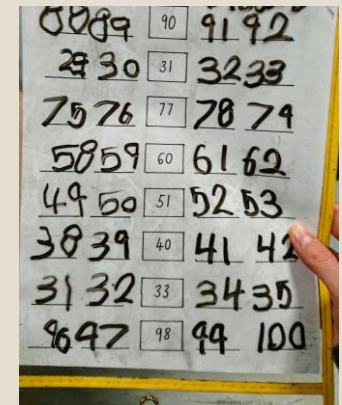 88 89 90 91 92
29 30 31 32 33
75 76 77 78 79
58 59 60 61 62
49 50 51 52 53
38 39 40 41 42
31 32 33 34 35
96 97 98 99 100